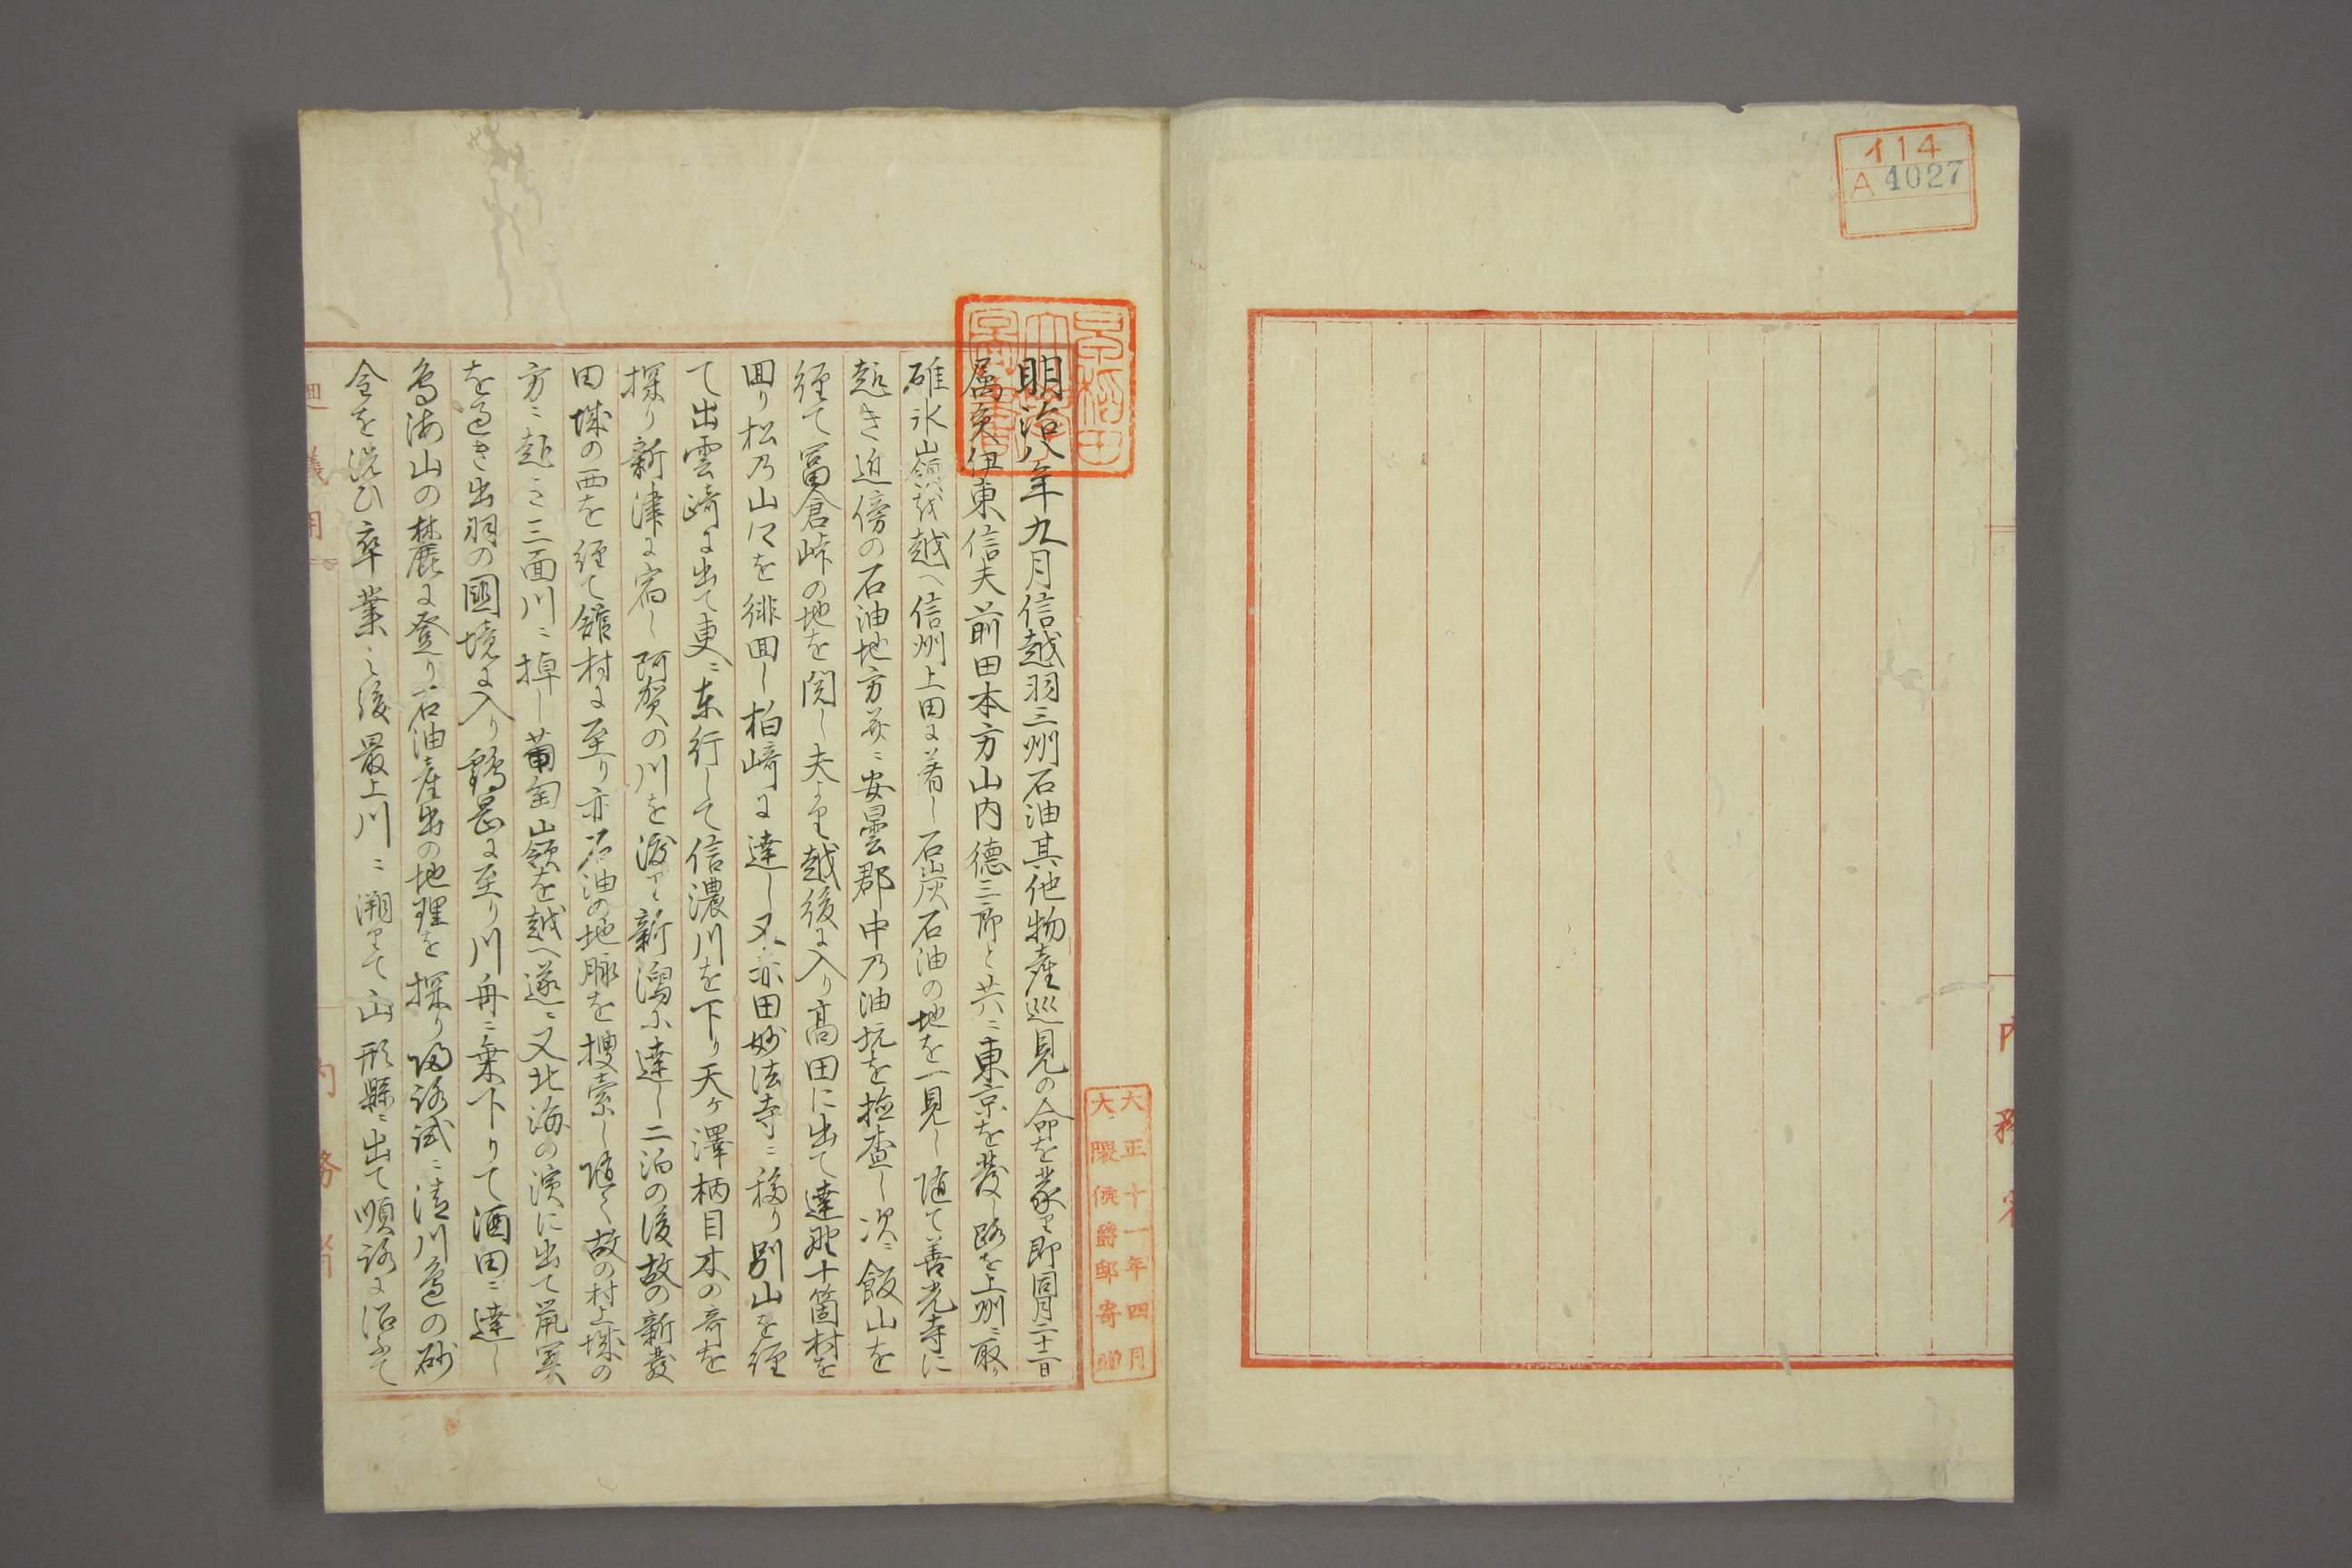 イ14
A 4027
内務省
大正十一年四月
大隈侯爵邸寄贈
明治八年九月信越羽三州石油其他物産巡見の命を蒙り即同月二十二日
属員伊東信夫前田本方山内徳三郎と共ニ東京を発し路を上州ニ取り
碓氷山嶺を越へ信州上田に着し石炭石油の地を一見し随て善光寺に
趣き近傍の石油地方并ニ安曇郡中乃油坑を検査し次ニ飯山を
経て富倉峠の地を閲し夫より越後に入り高田に出て達野十箇村を
囬り松乃山口を徘囬し柏崎に達し又亦田妙法寺ニ移り別山を経
て出雲崎に出て更ニ東行して信濃川を下り天ヶ澤柄目木の奇を
探り新津に宿し阿賀の川を渡り新潟に達し二泊の後故の新發
田城の西を経て舘村に至り亦石油の地脉を捜索し随て故の村上城の
方ニ趣き三面川ニ棹し葡萄山嶺を越へ遂ニ又北海の濱に出て鼡関
を過き出羽の國境に入り鶴岡に至り川舟ニ乗下りて酒田ニ達し
鳥海山の麓に登り石油産出の地理を探り帰路試ニ清川邑の砂
金を洗ひ卒業之後最上川ニ溯りて山形縣ニ出て順路に沿ふて
内務省